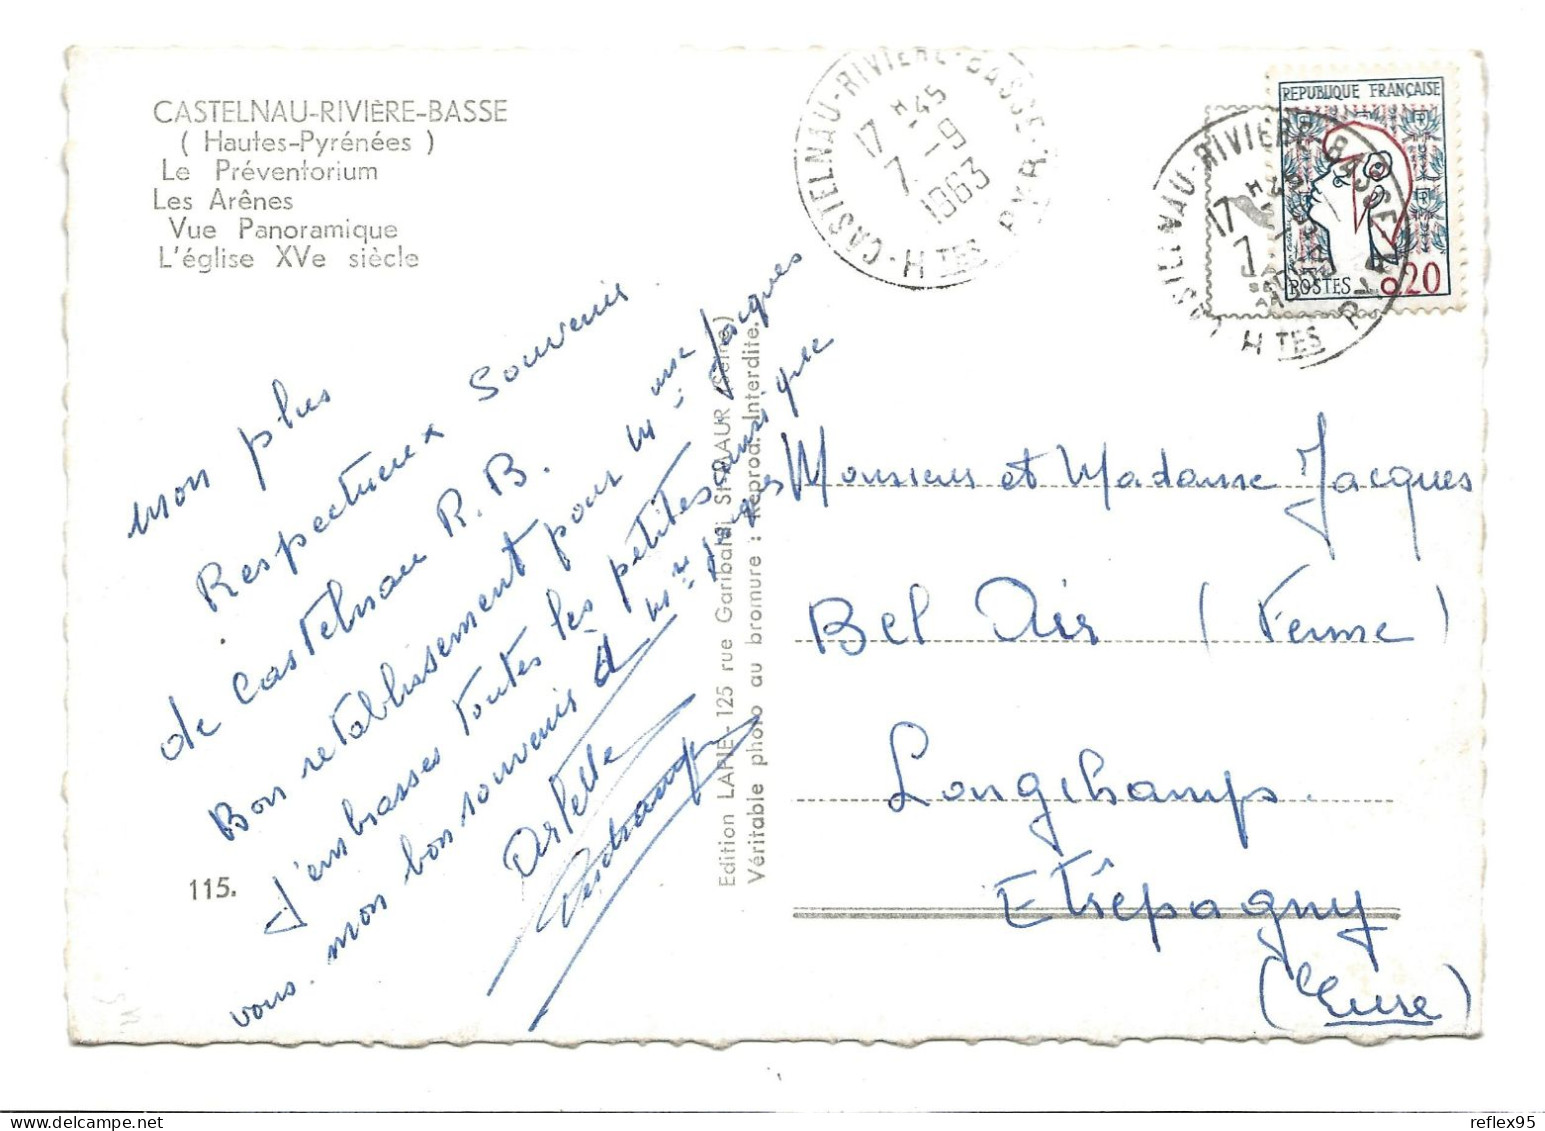 CASTELNAU-RIVIÈRE-BASSE
( Hautes-Pyrénées )
Le Préventorium
Les Arênes
Vue Panoramique
L'église XVe siècle
CASTELNAU-RIVIÈRE-BASSE
17 H 45
7 - 9
1963
HTES PYR.
REPUBLIQUE FRANÇAISE
POSTES
0,20
CASTELNAU-RIVIÈRE-BASSE
17 H 45
HTES PYR
mon plus
Respectueux souvenir
de Castelnau R. B.
Bon retablissement pour Mme Jacques
J'embrasses toutes les petites ainsi que
vous. mon bon souvenir à Mr Jacques
Arlette
Deschamps
115.
Edition LAPIE - 125 rue Garibaldi St-MAUR (Seine)
Véritable photo au bromure : Reprod. Interdite.
Monsieur et Madame Jacques
Bel Air ( Ferme )
Longchamps.
Etrépagny
(Eure)
reflex95